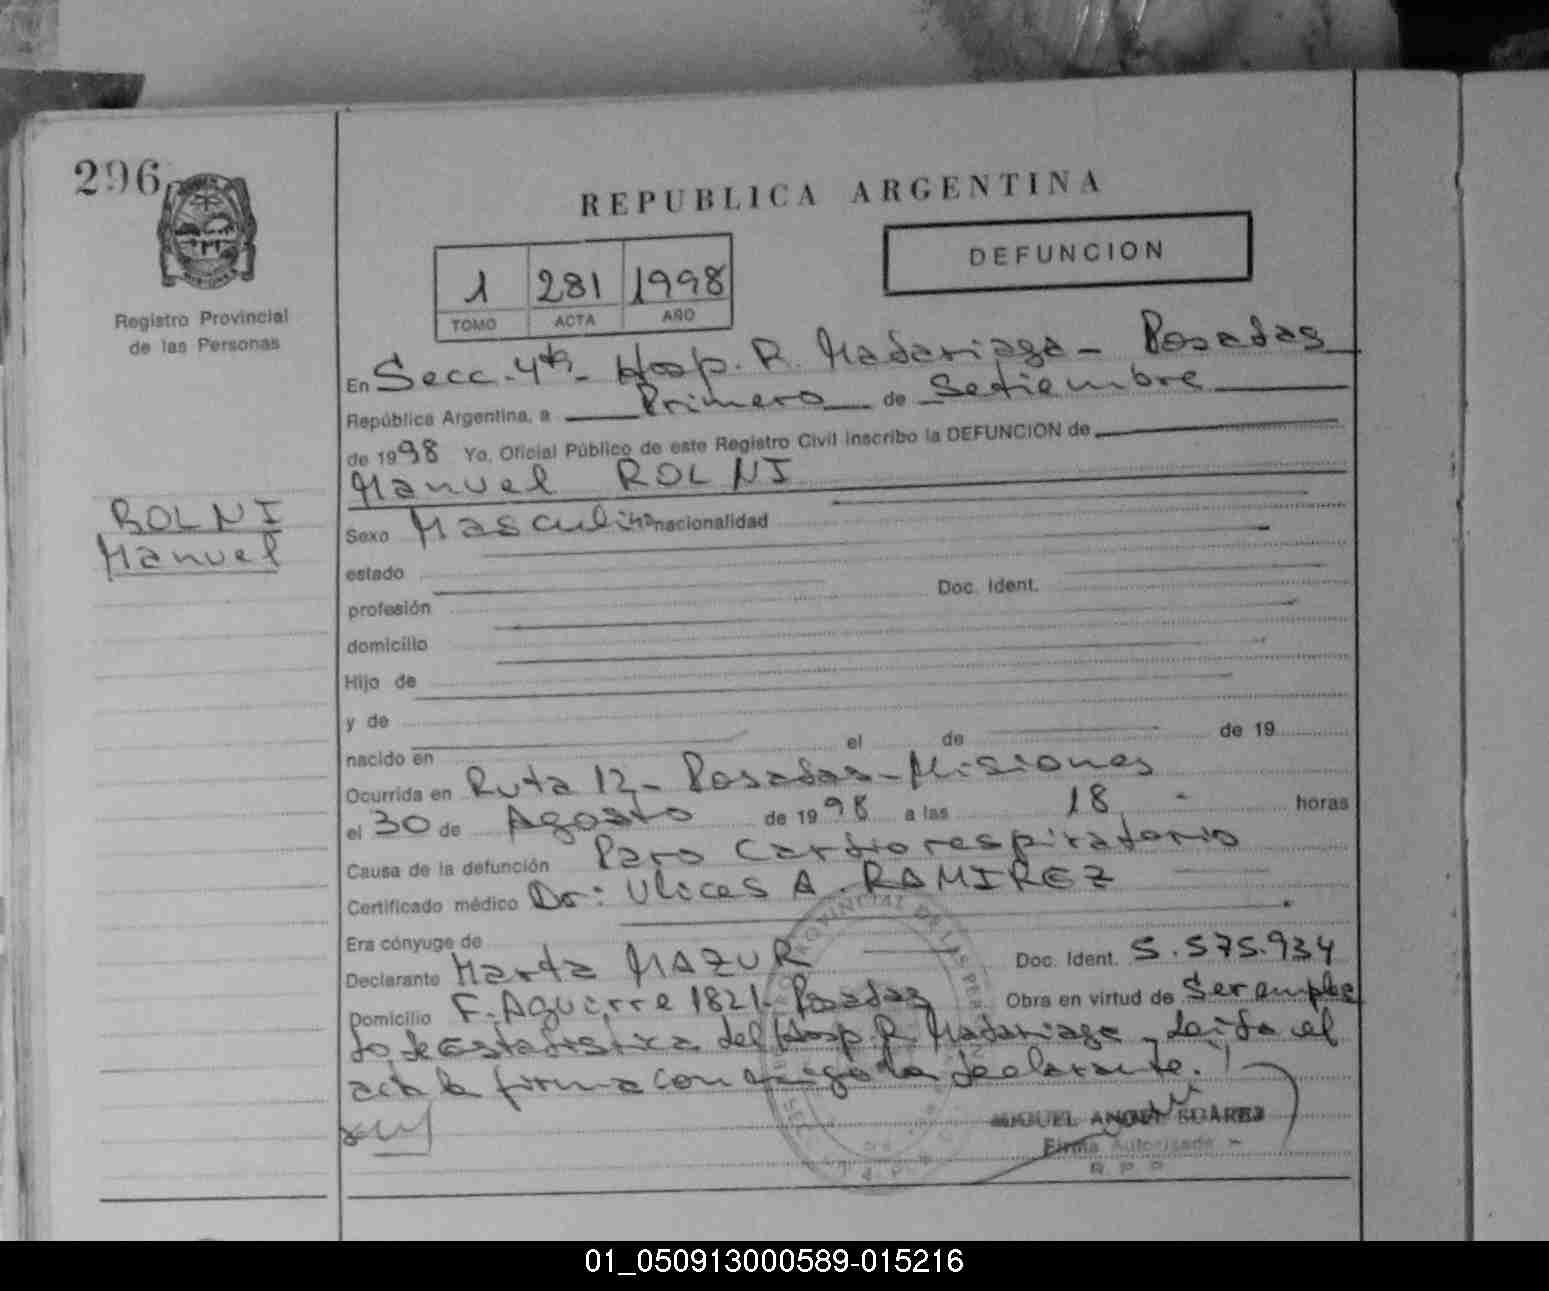 296
Registro Provincial
de las Personas
REPUBLICA ARGENTINA
DEFUNCION
1 281 1998
TOMO ACTA AÑO
En Secc. 4ta- Hosp. R. Madariaga - Posadas
República Argentina, a Primero de Setiembre
de 1998 Yo, Oficial Público de este Registro Civil inscribo la DEFUNCION de
Manuel ROLNI
ROLNI
Manuel
Sexo Masculino nacionalidad
estado
profesión Doc. Ident.
domicilio
Hijo de
y de
nacido en el de de 19
Ocurrida en Ruta 12 - Posadas - Misiones
el 30 de Agosto de 1998 a las 18 - horas
Causa de la defunción Paro Cardiorespiratorio
Certificado médico Dr: Ulices A. RAMIREZ
Era cónyuge de
Declarante Marta MAZUR Doc. Ident. 5.575.934
Domicilio F. Aguirre 1821- Posadas Obra en virtud de Ser emplea
do de Estadistica del Hosp. R. Madariaga - Leida el
acta la firma conmigo la declarante.
MIGUEL ANGEL SUAREZ
Firma Autorizada
R. P. P.
01_050913000589-015216